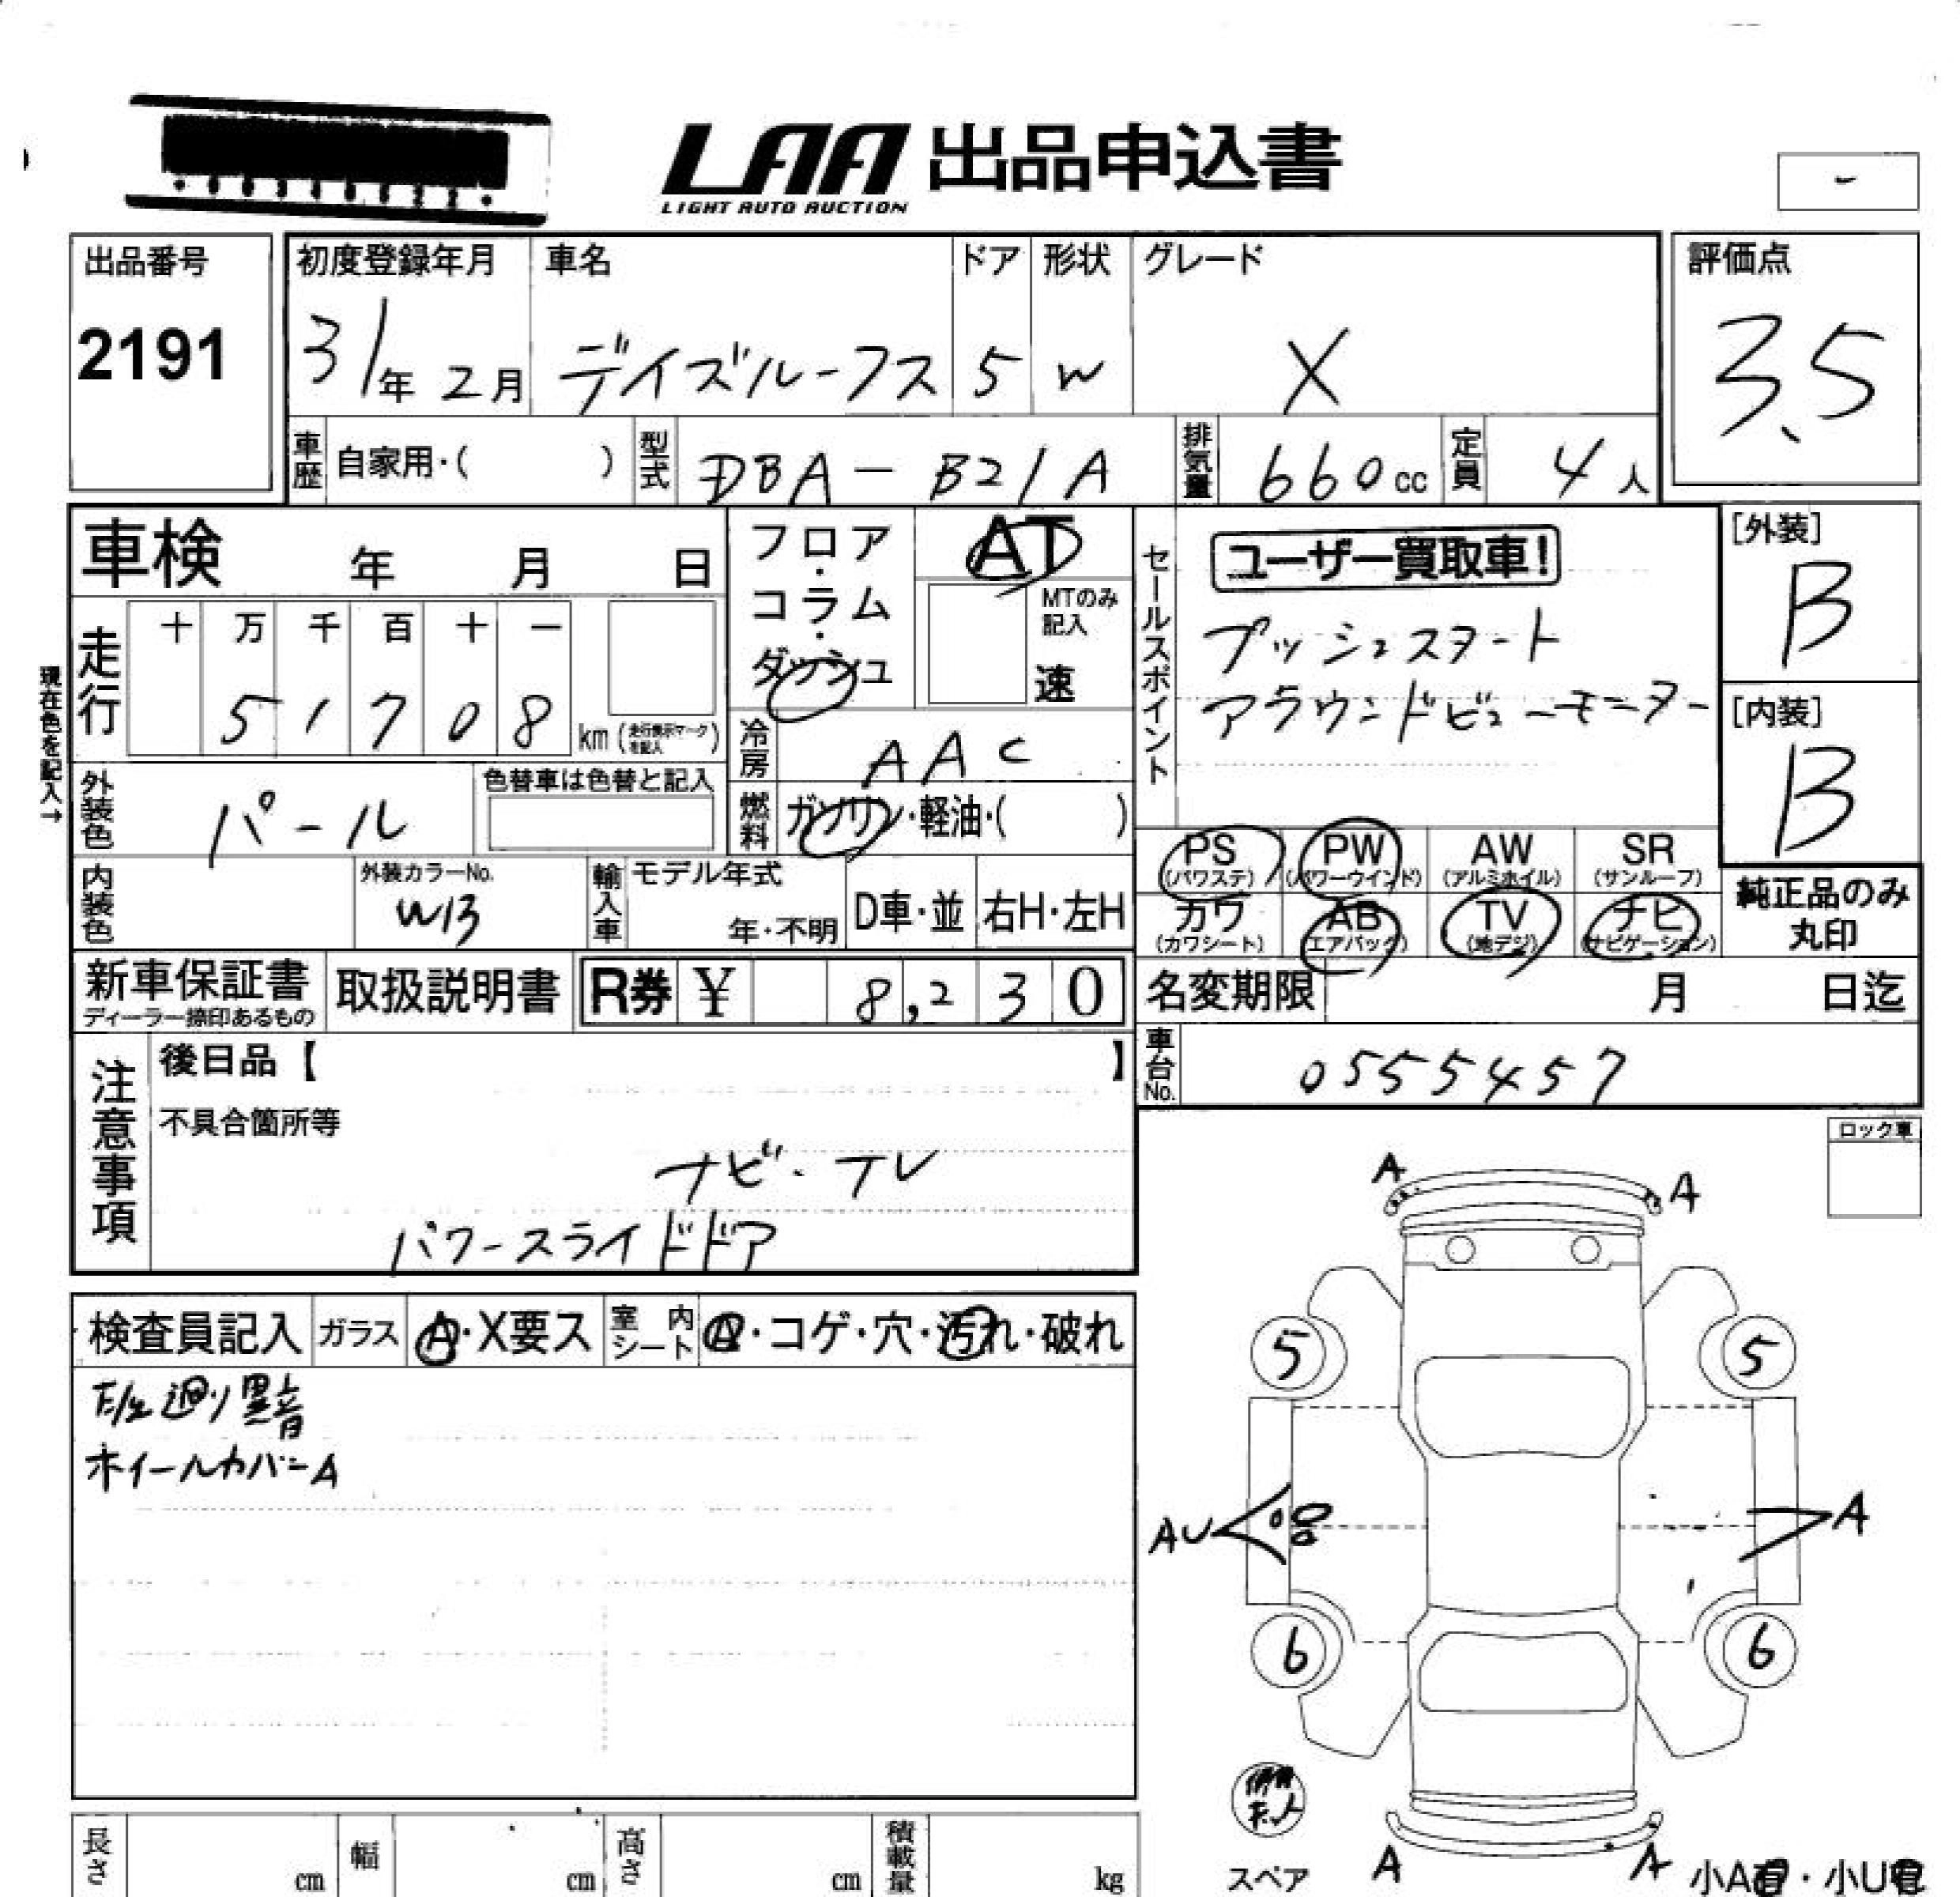 LAA 出品申込書
LIGHT AUTO AUCTION
-
出品番号
2191
初度登録年月
31年 2月
車名
デイズルークス
ドア
5
形状
W
グレード
X
評価点
3.5
車歴 自家用・( )
型式 DBA-B21A
排気量 660cc
定員 4人
車検 年 月 日
フロア・コラム・ダッシュ
AT
MTのみ記入
速
セールスポイント
ユーザー買取車!
プッシュスタート
アラウンドビューモニター
[外装]
B
[内装]
B
現在色を記入→
走行
十 万 千 百 十 一
5 1 7 0 8 km (走行表示マークを記入)
冷房 AAC
外装色 パール
色替車は色替と記入
燃料 ガソリン・軽油・( )
PS (パワステ)
PW (パワーウインド)
AW (アルミホイル)
SR (サンルーフ)
内装色
外装カラーNo.
W13
輸入車
モデル年式
年・不明
D車・並
右H・左H
カワ (カワシート)
AB (エアバック)
TV (地デジ)
ナビ (ナビゲーション)
純正品のみ
丸印
新車保証書
ディーラー捺印あるもの
取扱説明書
R券 ¥ 8,230
名変期限 月 日迄
車台No. 0555457
注意事項
後日品【 】
不具合箇所等
ナビ・TV
パワースライドドア
ロック車
検査員記入
ガラス A・X要ス
室内シート A・コゲ・穴・汚れ・破れ
廻り異音
ホイールカバーA
A A
5 5
AU A
6 6
A A
スペア
小A・小U
長さ cm
幅 cm
高さ cm
積載量 kg